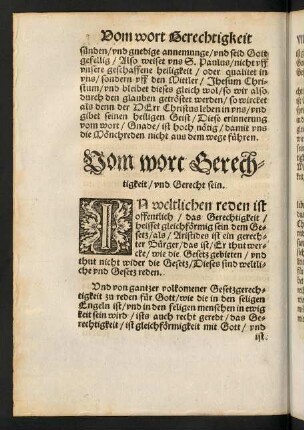 Vom wort Gerechtigkeit
sünden/vnd gnedige annemunge/vnd seid Gott
gefellig/ Also weiset vns S. Paulus/nicht vff
vnsere geschaffene heiligkeit / oder qualitet in
vns / sondern vff den Mitler / Jhesum Chri-
stum/vnd bleibet dieses gleich wol/so wir also
durch den glauben getröstet werden/so wircket
als denn der HErr Christus leben in vns/vnd
gibet seinen heiligen Geist / Diese erinnerung
vom wort / Gnade/ ist hoch nötig/ damit vns
die Mönchreden nicht aus dem wege führen.
Vom wort Gerech-
tigkeit / vnd Gerecht sein.
IN weltlichen reden ist
offentlich / das Gerechtigkeit /
heisset gleichförmig sein dem Ge-
setz/als/ Aristides ist ein gerech-
ter Bürger/das ist/Er thut wer-
cke/wie die Gesetz gebieten / vnd
thut nicht wider die Gesetz/Dieses sind weltli-
che vnd Gesetz reden.
Vnd von gantzer volkomener Gesetzgerech-
tigkeit zu reden für Gott/wie die in den seligen
Engeln ist/vnd in den seligen menschen in ewig
keit sein wird / ists auch recht geredt/das Ge-
rechtigkeit / ist gleichförmigkeit mit Gott / vnd
ist.